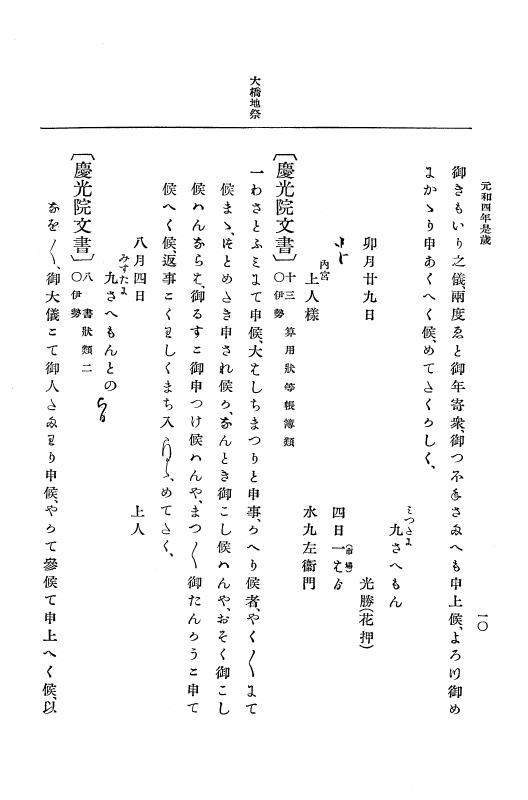 元和四年是歳
一〇
大橋地祭
御きもいり之儀、兩度ゑと御年寄衆、御つ不祢さ満へも申上候、よろ川御め
よかゝり申あくへく候、めてさくらしく、
ミつさま
九さへもん
卯月廿九日
光勝(花押)
四日一
(市場)
内宮
上人樣
水九左衞門
〔慶光院文書〕
十三 算用狀等帳簿類
〇伊勢
一わさとふミよて申候、大はしちまつりと申事、うへり候者、やく〳〵よて
候まゝ、ほとめさき申され候う、なんとき御こし候ハんや、おそく御こし
候ハんならは、御るすニ御申つけ候ハんや、まつ〳〵御たんかうニ申て
候へく候、返事ニくはしくまち入
めてさく、
八月四日
上人
みすたま
九さへもんとの
〔慶光院文書〕
八 書狀類二
〇伊勢
なを〳〵、御大儀ニて御人
り申候、やうて參候て申上へく候、以